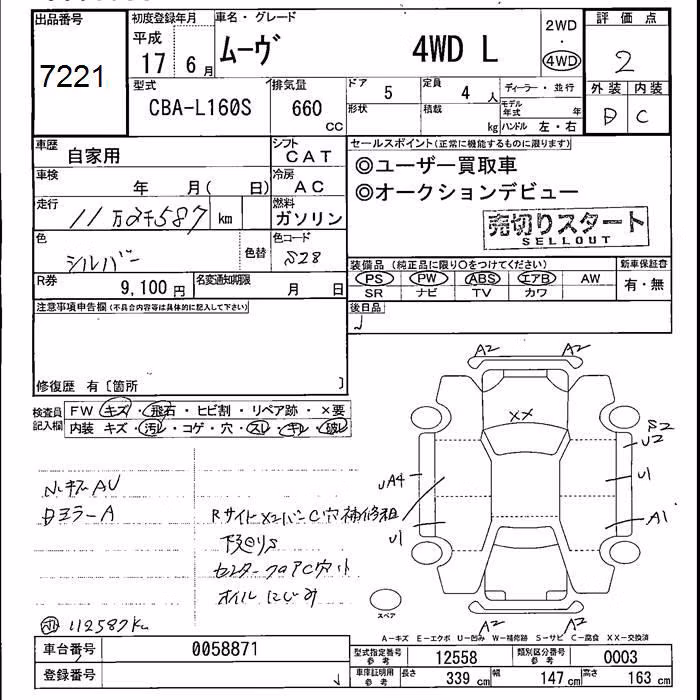 出品番号
7221
初度登録年月
平成
17 6月
車名・グレード
ムーヴ 4WD L
2WD
・
4WD
評価点
2
型式
CBA-L160S
排気量
660
CC
ドア
5
定員
4 人
形状
積載
kg
ディーラー・並行
モデル
年式 年
ハンドル 左・右
外装 内装
D C
車歴
自家用
シフト
CAT
車検
年 月( 日)
冷房
AC
走行
11万2千587 km
燃料
ガソリン
色
シルバー
色替
色コード
S28
R券
9,100円
名変通知期限
月 日
セールスポイント(正常に機能するものに限ります)
◎ユーザー買取車
◎オークションデビュー
売切りスタート
SELLOUT
装備品(純正品に限り○をつけてください)
PS PW ABS エアB AW
SR ナビ TV カワ
新車保証書
有・無
後日品
注意事項申告欄(不具合内容等は具体的に記入して下さい)
修復歴 有〔箇所 〕
検査員
記入欄
FW キズ・飛石・ヒビ割・リペア跡・×要
内装 キズ・汚レ・コゲ・穴・スレ・キレ・破レ
ルーキズAU
Dミラー A
Rサイドメンバー C穴補修粗
下廻りS
センターフロアC穴ット
オイルにじみ
112587Km
A2 A2
XX
S2
U2
UA4
U1
U1
A1
スペア
A2 A2
A-キズ E-エクボ U-凹み W-補修跡 S-サビ C-腐食 XX-交換済
車台番号
0058871
登録番号
型式指定番号
参考
12558
類別区分番号
参考
0003
車庫証明用
参考
長さ
339 cm
幅
147 cm
高さ
163 cm